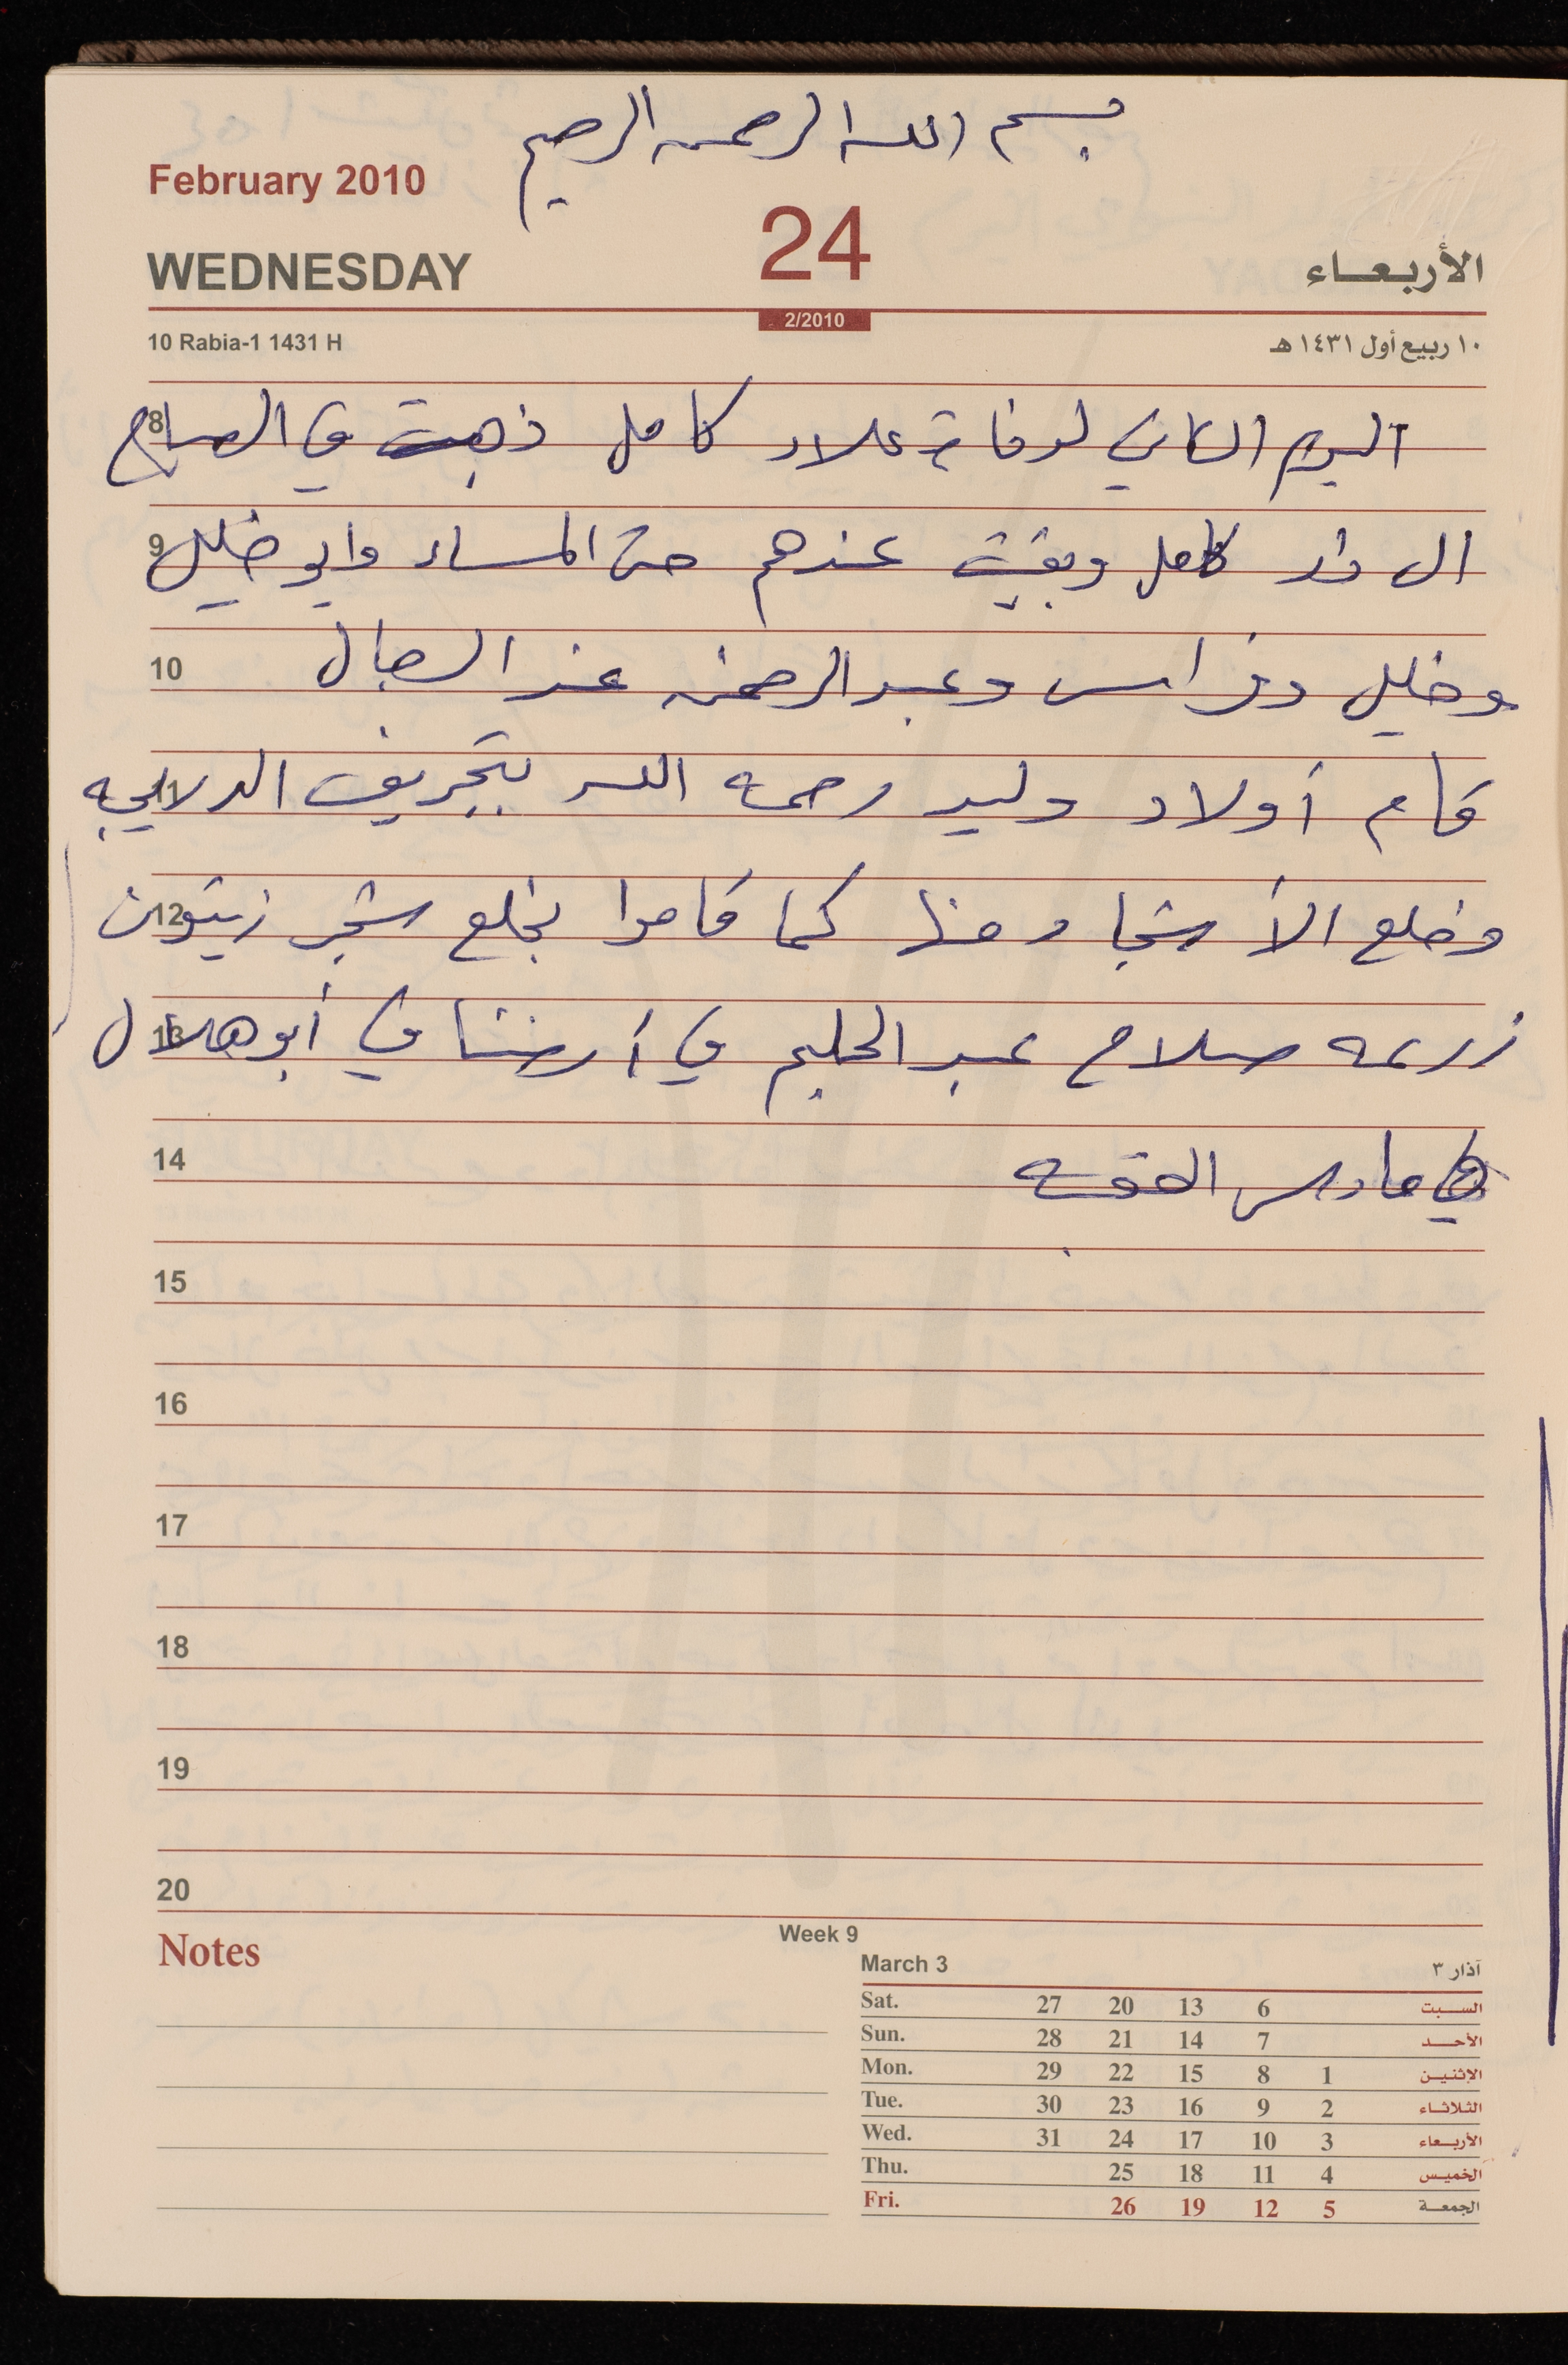 بسم الله الرحمن الرحيم
February 2010
WEDNESDAY 24 الأربعاء
2/2010
10 Rabia-1 1431 H ١٠ ربيع أول ١٤٣١ هـ
8 اليوم الثاني لوفاة علاء كامل ذهبت في الصباح
9 الى دار كامل وبقيت عندهم حتى المساء وابو خليل
10 وخليل وفراس وعبد الرحمن عند الرجال
11 قام أولاد وليد رحمه الله بتجريف الدلاليه
12 وخلع الأشجار منها كما قاموا بخلع شجر زيتون
13 زرعه صلاح عبد الحليم في أرضنا في أبو هلال
14 في مارس
15
16
17
18
19
20
Notes
Week 9
March 3 آذار ٣
Sat. 27 20 13 6 السبت
Sun. 28 21 14 7 الأحد
Mon. 29 22 15 8 1 الإثنين
Tue. 30 23 16 9 2 الثلاثاء
Wed. 31 24 17 10 3 الأربعاء
Thu. 25 18 11 4 الخميس
Fri. 26 19 12 5 الجمعة